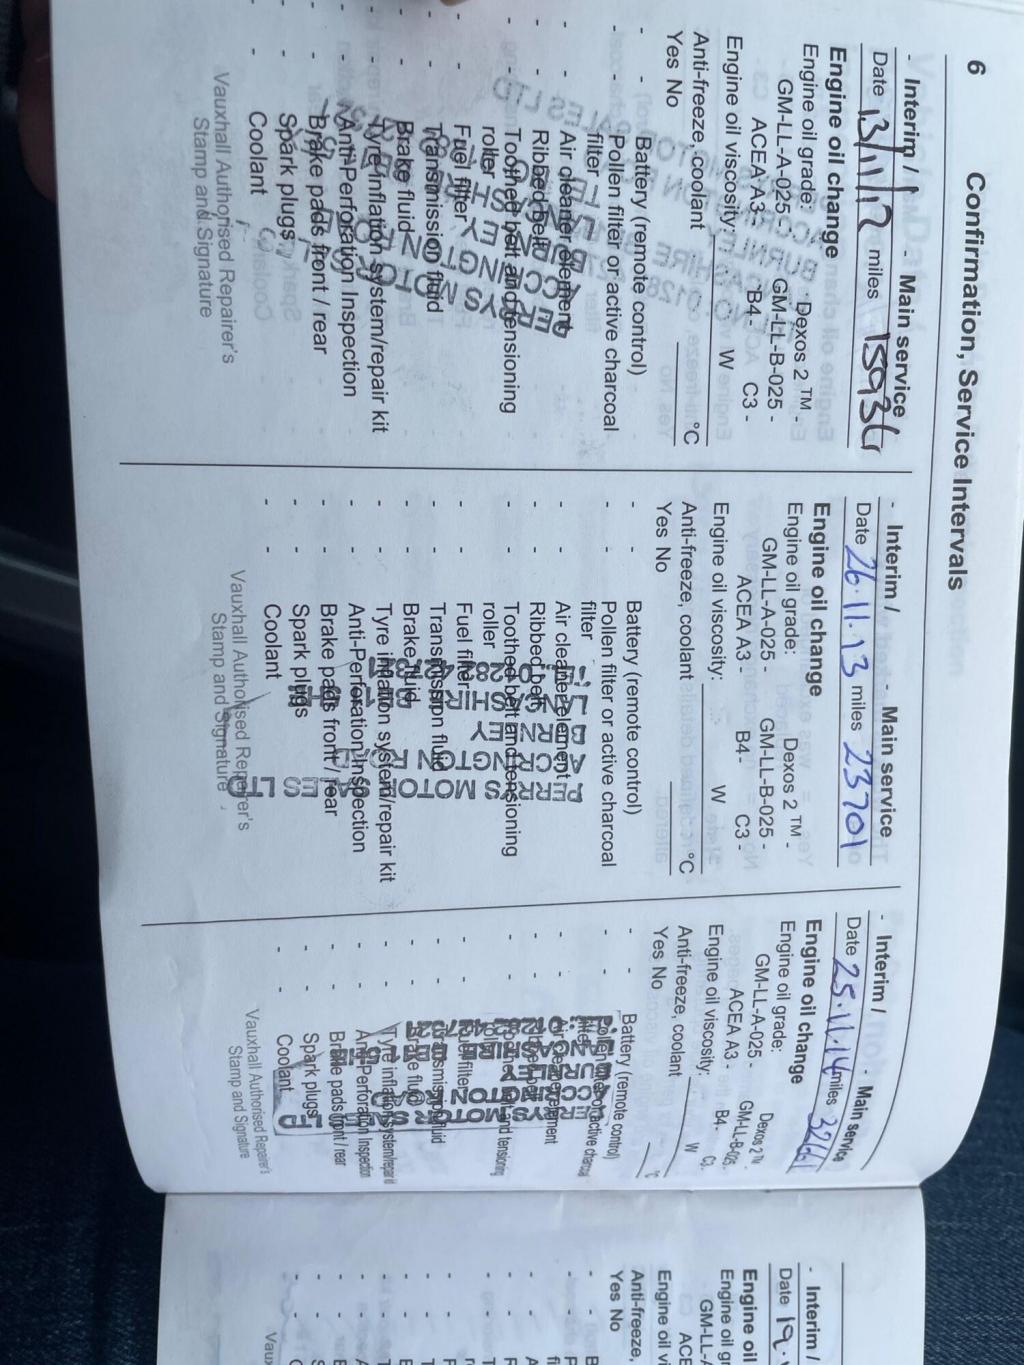 6 Confirmation, Service Intervals
- Interim / - Main service
Date 13/11/12 miles 15936
Engine oil change
Engine oil grade: Dexos 2 ™ -
GM-LL-A-025 - GM-LL-B-025 -
ACEA A3 - B4 - C3 -
Engine oil viscosity: W
Anti-freeze, coolant °C
Yes No
- - Battery (remote control)
- - Pollen filter or active charcoal
filter
- - Air cleaner element
- - Ribbed belt
- - Toothed belt and tensioning
roller
- - Fuel filter
- - Transmission fluid
- - Brake fluid
- - Tyre inflation system/repair kit
- - Anti-Perforation Inspection
- - Brake pads front / rear
- - Spark plugs
- - Coolant
PERRYS MOTOR SALES LTD
ACCRINGTON ROAD
BURNLEY
Vauxhall Authorised Repairer's
Stamp and Signature
- Interim / - Main service
Date 26.11.13 miles 23701
Engine oil change
Engine oil grade: Dexos 2 ™ -
GM-LL-A-025 - GM-LL-B-025 -
ACEA A3 - B4 - C3 -
Engine oil viscosity: W
Anti-freeze, coolant °C
Yes No
- - Battery (remote control)
- - Pollen filter or active charcoal
filter
- - Air cleaner element
- - Ribbed belt
- - Toothed belt and tensioning
roller
- - Fuel filter
- - Transmission fluid
- - Brake fluid
- - Tyre inflation system/repair kit
- - Anti-Perforation Inspection
- - Brake pads front / rear
- - Spark plugs
- - Coolant
PERRYS MOTOR SALES LTD
ACCRINGTON ROAD
BURNLEY
Vauxhall Authorised Repairer's
Stamp and Signature
- Interim / - Main service
Date 25.11.14 miles
Engine oil change
Engine oil grade: Dexos 2 ™ -
GM-LL-A-025 - GM-LL-B-025 -
ACEA A3 - B4 - C3 -
Engine oil viscosity: W
Anti-freeze, coolant °C
Yes No
- - Battery (remote control)
- - Pollen filter or active charcoal
filter
- - Air cleaner element
- - Ribbed belt
- - Toothed belt and tensioning
roller
- - Fuel filter
- - Transmission fluid
- - Brake fluid
- - Tyre inflation system/repair
- - Anti-Perforation Inspection
- - Brake pads front / rear
- - Spark plugs
- - Coolant
Vauxhall Authorised Repairer's
Stamp and Signature
- Interim /
Date 19.
Engine oil
Engine oil gr
GM-LL-A
ACE
Engine oil vi
Anti-freeze,
Yes No